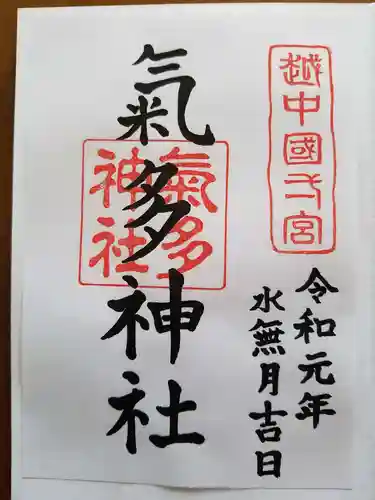 越中國一宮
令和元年
水無月吉日
氣多神社
氣多
神社